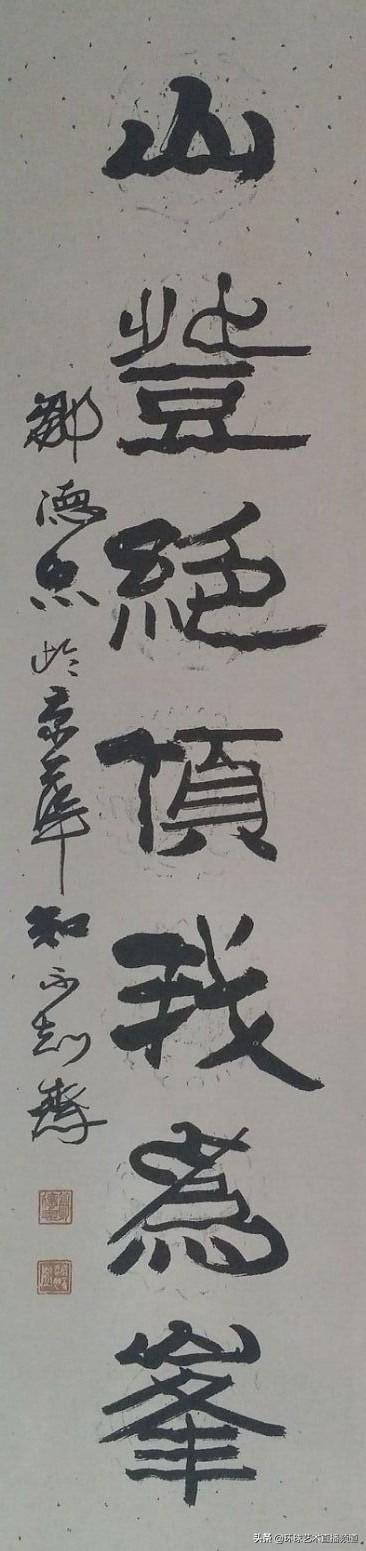 山登絶頂我為峯
鄒德忠於京華知不知齋
头条 @环球艺术直播频道